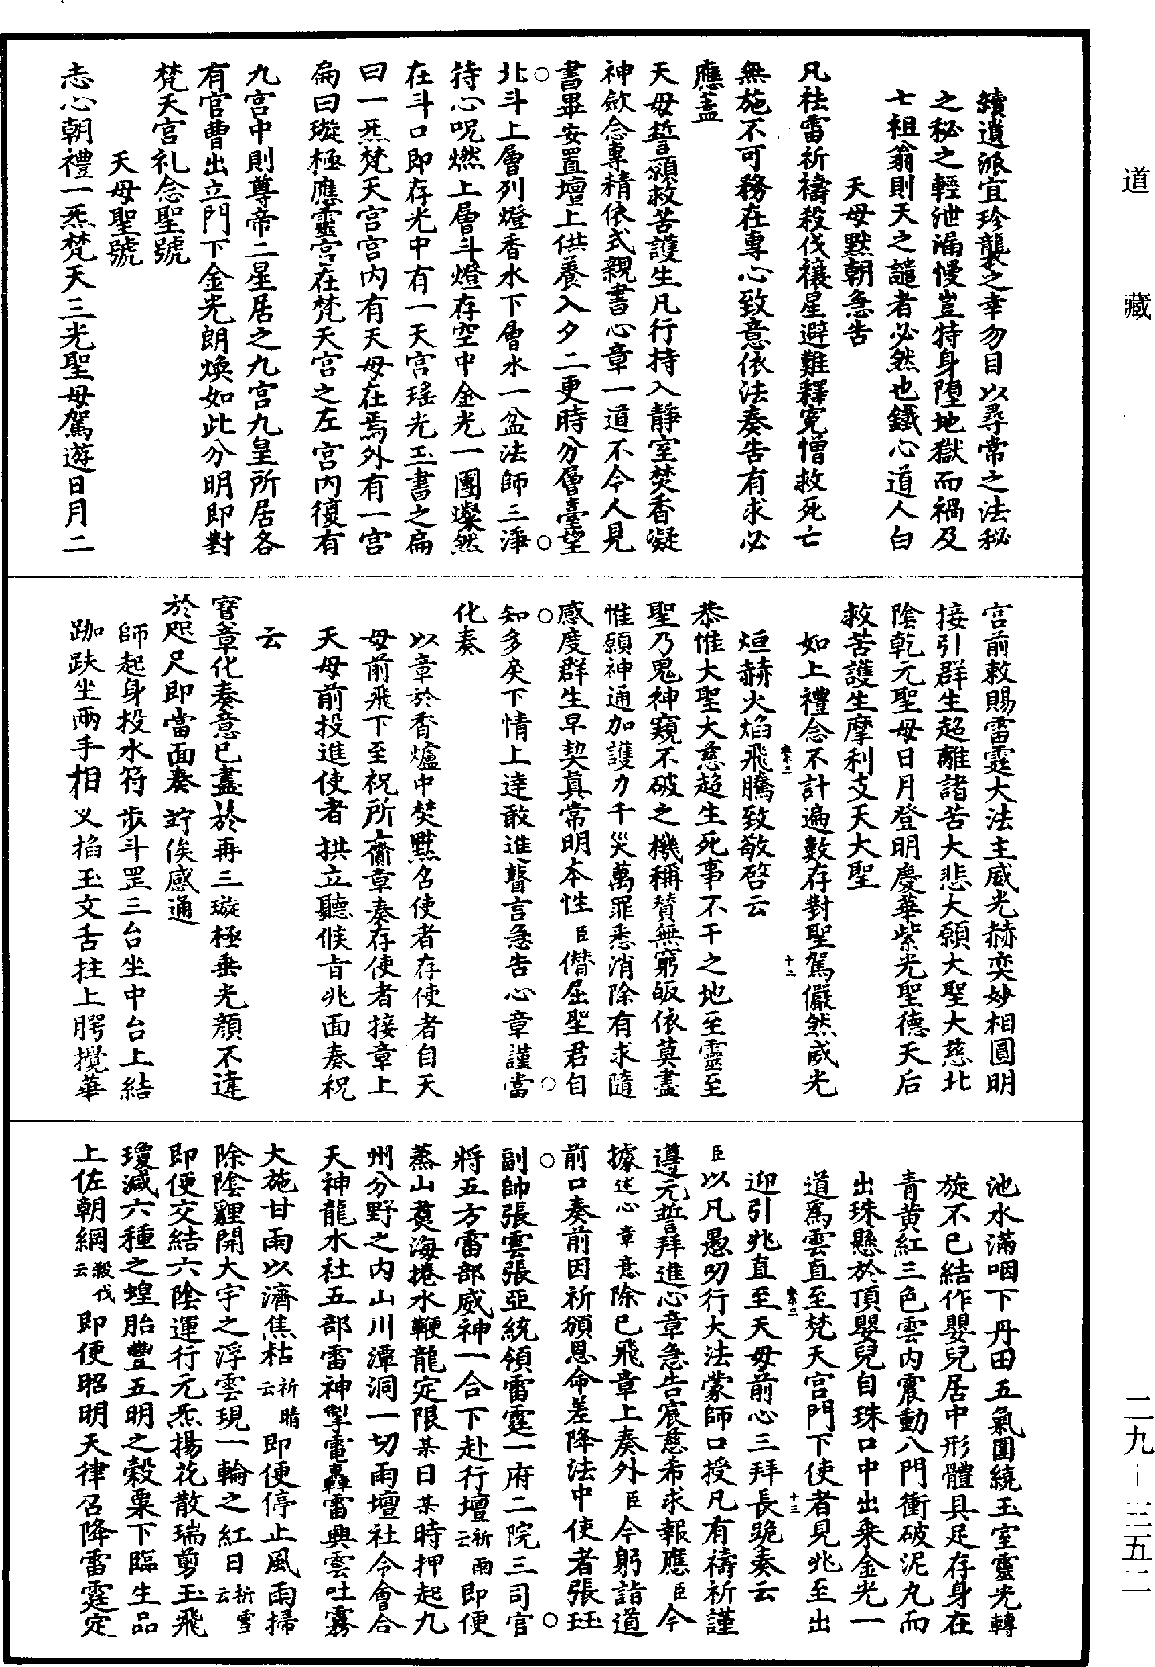 道藏
續道派宜珍襲之幸勿目以尋常之法秘
之秘之輕泄漏慢豈特身墮地獄而禍及
七祖翁則天之譴者必然也鐵心道人白
天母默朝急告
凡祛雷祈禱殺伐禳星避難釋寃憎救死亡
無施不可務在專心致意依法奏告有求必
應盖
天母誓願救苦護生凡行持入靜室焚香凝
神歛念專精依式親書心章一道不令人見
書畢安置壇上供養入夕二更時分層臺望
北斗上層列燈香水下層水一盆法師三淨
持心呪燃上層斗燈存空中金光一團燦然
在斗口即存光中有一天宮瑤光玉書之扁
曰一炁梵天宮宮內有天母在焉外有一宮
扁曰璇極應靈宮在梵天宮之左宮內復有
九宮中則尊帝二星居之九宮九皇所居各
有官曹出立門下金光朗煥如此分明即對
梵天宮礼念聖號
天母聖號
志心朝禮一炁梵天三光聖母駕遊日月二
宮前敕賜雷霆大法主威光赫奕妙相圓明
接引群生超離諸苦大悲大願大聖大慈北
陰乾元聖母日月登明慶華紫光聖德天后
救苦護生摩利支天大聖
如上禮念不計遍數存對聖駕儼然威光
烜赫火焰飛騰致敬啓云
恭惟大聖大慈超生死事不干之地至靈至
聖乃鬼神窺不破之機稱贊無窮皈依莫盡
惟願神通加護力千災萬罪悉消除有求隨
感度群生早契真常明本性臣僭屈聖君自
知多矣下情上達敢進瞽言急告心章謹當
化奏
以章於香爐中焚默名使者存使者自天
母前飛下至祝所齎章奏存使者接章上
天母前投進使者拱立聽候旨兆面奏祝
云
寶章化奏意已盡於再三璇極垂光顏不違
於咫尺即當面奏竚俟感通
師起身投水符步斗罡三台坐中台上結
跏趺坐兩手相义掐玉文舌拄上腭攪華
池水滿咽下丹田五氣圍繞玉室靈光轉
旋不已結作嬰兒居中形體具足存身在
青黄紅三色雲內震動八門衝破泥九而
出珠懸於頂嬰兒自珠口中出乘金光一
道駕雲直至梵天宮門下使者見兆至出
迎引兆直至天母前心三拜長跪奏云
臣以凡愚叨行大法蒙師口授凡有禱祈謹
遵元誓拜進心章急告宸慈希求報應臣今
據述心章意除已飛章上奏外臣今躬詣道
前口奏前因祈頒恩命差降法中使者張珏
副帥張雲張亞統領雷霆一府二院三司官
將五方雷部威神一合下赴行壇祈雨云即便
蒸山㷊海捲水鞭龍定限某日某時押起九
州分野之內山川潭洞一切雨壇社令會合
天神龍水社五部雷神掣電轟雷興雲吐霧
大施甘雨以濟焦枯祈晴云即便停止風雨掃
除陰霾開大宇之浮雲現一輪之紅日祈雪云
即便交結六陰運行元炁揚花散瑞剪玉飛
瓊滅六種之蝗胎豐五明之穀粟下臨生品
上佐朝綱殺伐云即便昭明天律召降雷霆定
二九－三五二